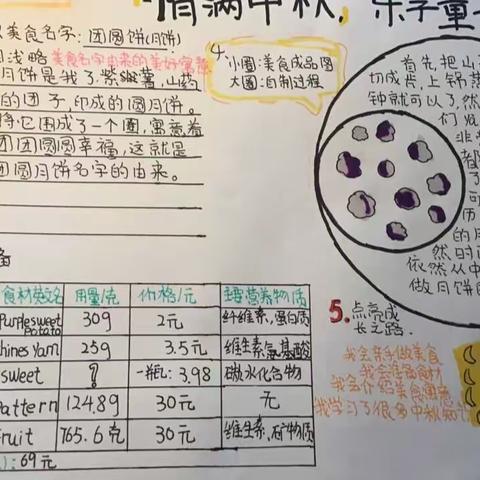 情满中秋，乐享童
美食名字：团圆饼（月饼）
浅略美食名字由来的美好寓意
月饼是我了紫薯，山药
的团子，印成的圆月饼。
将它围成了一个圈，寓意着
团团圆圆幸福，这就是
团圆月饼名字的由来。
4.
小圈：美食成品图
大圈：自制过程
首先把山
切成片，上锅蒸
钟就可以了，然
们发
非常
都
了
可
历
的月
然时
依然从中
做月饼
食材类名 用量/克 价格/元 主要营养物质
Purplesweet potato 30g 2元 纤维素，蛋白质
hines Yam 25g 3.5元 维生素氨基酸
sweet ? 一瓶：3.98 碳水化合物
Pattern 124.89 30元 无
Fruit 765.6克 30元 维生素，矿物质
）：69元
5.点亮成
长之路．
我会亲手做美食
我会准备食材
我会介绍美食
我学习了很多中秋知识